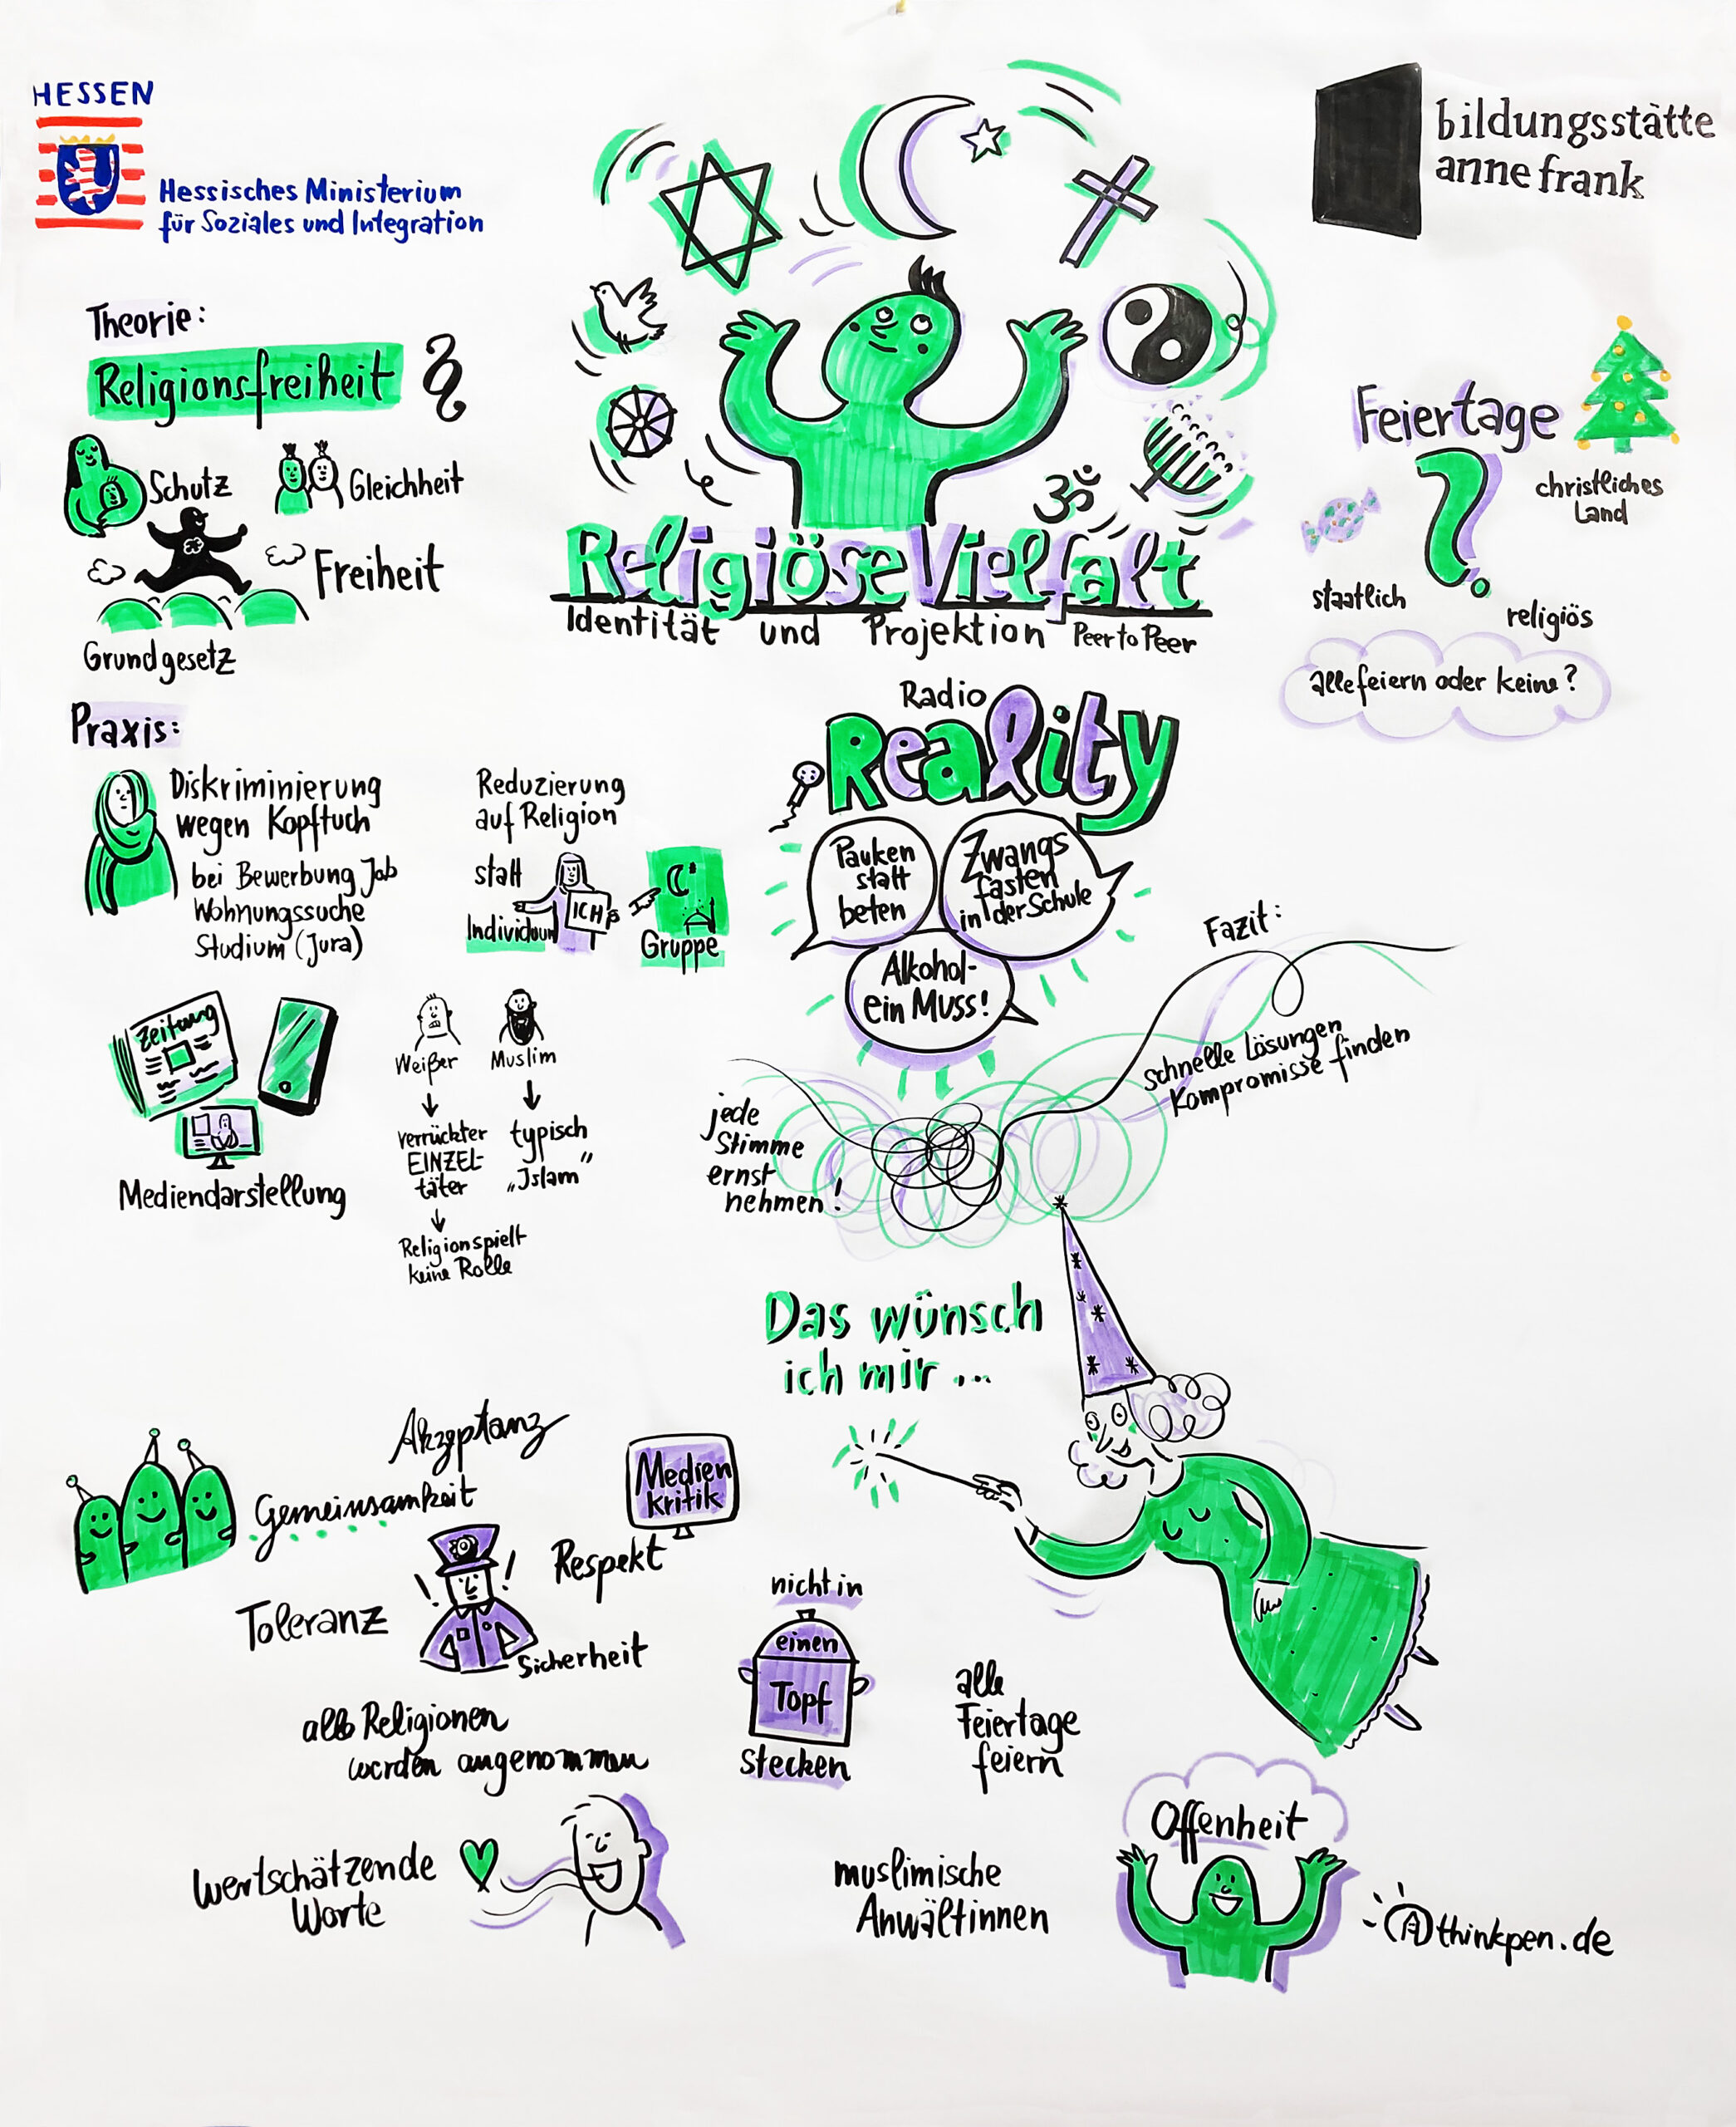 HESSEN
Hessisches Ministerium
für Soziales und Integration
bildungsstätte
anne frank
Theorie:
Religionsfreiheit §
Schutz
Gleichheit
Freiheit
Grundgesetz
Religiöse Vielfalt
Identität und Projektion Peer to Peer
Feiertage
?
christliches
Land
staatlich
religiös
alle feiern oder keine?
Praxis:
Diskriminierung
wegen Kopftuch
bei Bewerbung Job
Wohnungssuche
Studium (Jura)
Reduzierung
auf Religion
statt
ICH
Individuum
Gruppe
Zeitung
Mediendarstellung
Weißer
verrückter
EINZEL-
täter
Religion spielt
keine Rolle
Muslim
typisch
„Islam"
Radio
Reality
Pauken
statt
beten
Zwangs
fasten
in der Schule
Alkohol-
ein Muss!
jede
Stimme
ernst
nehmen!
Fazit:
schnelle Lösungen
Kompromisse finden
Das wünsch
ich mir ...
Akzeptanz
Gemeinsamkeit
Medien
kritik
Respekt
Toleranz
! !
Sicherheit
alle Religionen
werden angenommen
nicht in
einen
Topf
stecken
alle
Feiertage
feiern
wertschätzende
Worte
muslimische
Anwältinnen
Offenheit
A thinkpen.de